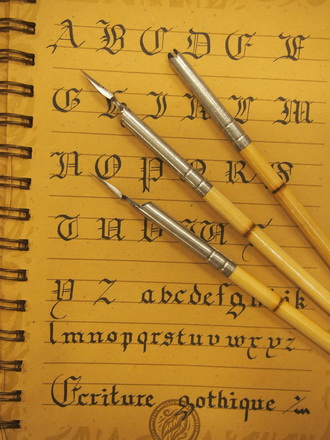 A B C D E F
G H I K L M
N O P Q R S
T U V W X
Y Z abcdefghijk
lmnopqrstuvwxyz
Ecriture gothique